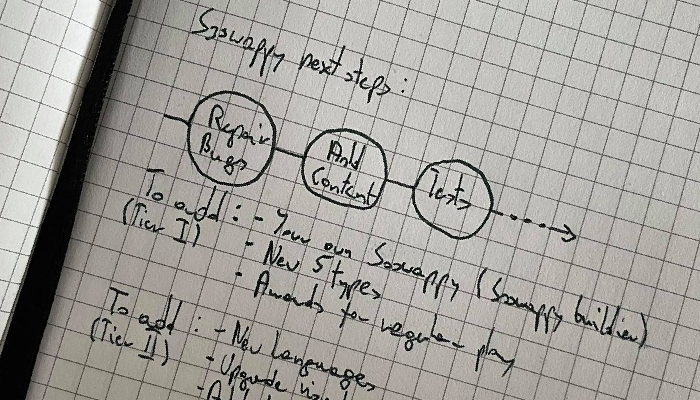 Soswappy next steps:
Repair
Bugs
Add
Content
Tests
To add: - Your own Soswappy (Soswappy buildier)
(Tier I) - New 5 types
- Awards for regular play
To add: - New languages
(Tier II) - Upgrade